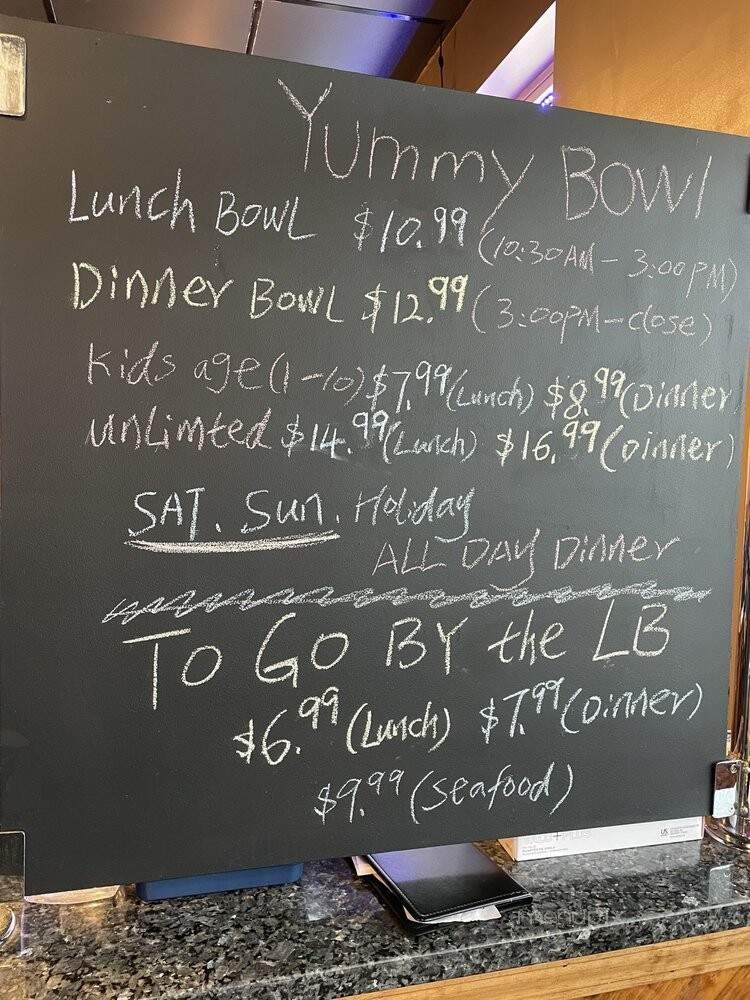 Yummy Bowl
Lunch Bowl $10.99 (10:30AM - 3:00PM)
Dinner Bowl $12.99 (3:00PM - close)
Kids age (1-10) $7.99 (Lunch) $8.99 (Dinner)
unLimted $14.99 (Lunch) $16.99 (Dinner)
SAT. Sun. Holiday
ALL DAy Dinner
To Go By the LB
$6.99 (Lunch) $7.99 (Dinner)
$9.99 (seafood)